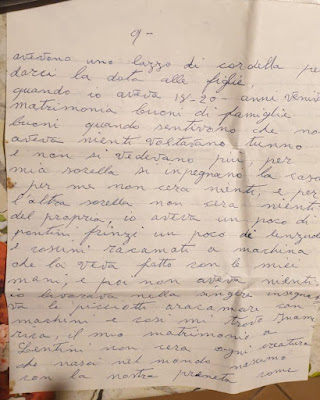 9-
avevono uno lazzo di cordella pe
darci la dota alle figlie,
quando io aveva 18-20- anni veniv
matrimonia buoni di famiglie
buoni quando sentivono che no
aveva nienti voltavano tunno
e non si vedevano piu, per
mia sorella si inpegnano la casa
e per me non cera nenti, e per
l'altra sorella non cera nienti
del proprio, io aveva un poco di
pontini frinzi un poco di lenzuola
e cosuni racamati a machina
che la veva fatto con le miei
mani, e poi non aveva nienti
io lavorava nella singhir insegna
va le picciotti aracamare con
machini e così mi trovo Inam
rica, il mio matrimonio a
Lentini non cera, ogni creatura
che nasci nel mondo nasciamo
con la nostra pianeta come